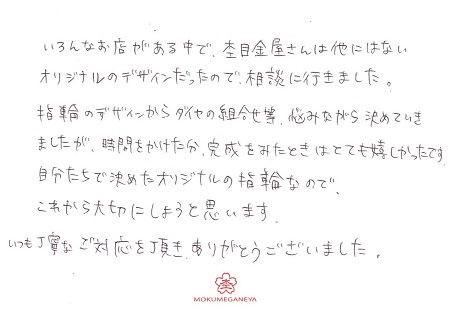 いろんなお店がある中で、杢目金屋さんは他にはない
オリジナルのデザインだったので、相談に行きました。
指輪のデザインからダイヤの組合せ等、悩みながら決めていき
ましたが、時間をかけた分、完成をみたときはとても嬉しかったです
自分たちで決めたオリジナルの指輪なので、
これから大切にしようと思います
いつも丁寧なご対応を頂き、ありがとうございました。
杢
MOKUMEGANEYA